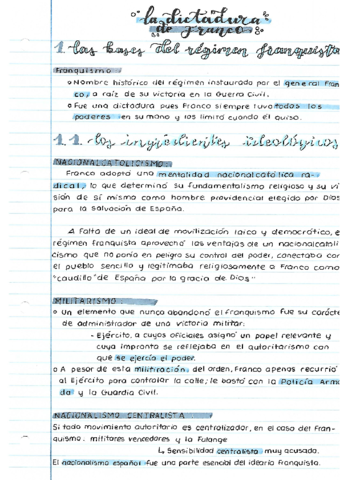 la dictadura
de Franco
1. las bases del régimen franquista
Franquismo:
Nombre histórico del régimen instaurado por el general Fran
co, a raíz de su victoria en la Guerra Civil.
Fue una dictadura pues Franco siempre tuvo todos los
poderes en su mano y los limitó cuando él quiso.
1.1. los ingredientes ideológicos
NACIONALCATOLICISMO:
Franco adopta una mentalidad nacionalcatólica ra-
dical, lo que determinó su fundamentalismo religioso y su vi
sión de sí mismo como hombre providencial elegido por Dios
para la salvación de España.
A falta de un ideal de movilización laico y democrático, e
régimen franquista aprovechó las ventajas de un nacionalcatoli
cismo que no ponía en peligro su control del poder, conectaba con
el pueblo sencillo y legitimaba religiosamente a Franco como
"caudillo" de España por la gracia de Dios"
MILITARISMO:
Un elemento que nunca abandonó el franquismo fue su carácte
de administrador de una victoria militar:
- Ejército, a cuyos oficiales asignó un papel relevante y
cuya impronta se reflejaba en el autoritarismo con
que se ejercía el poder.
A pesar de esta militiración, del orden, Franco apenas recurrió
al Ejército para controlar la calle; le bastó con la Policía Arma
da y la Guardia Civil.
NACIONALISMO CENTRALISTA
Si todo movimiento autoritario es centralizador, en el caso del Fran-
quismo: militares vencedores y la Falange
↳ Sensibilidad centralista muy acusada.
El nacionalismo español fue una parte esencial del ideario franquista.